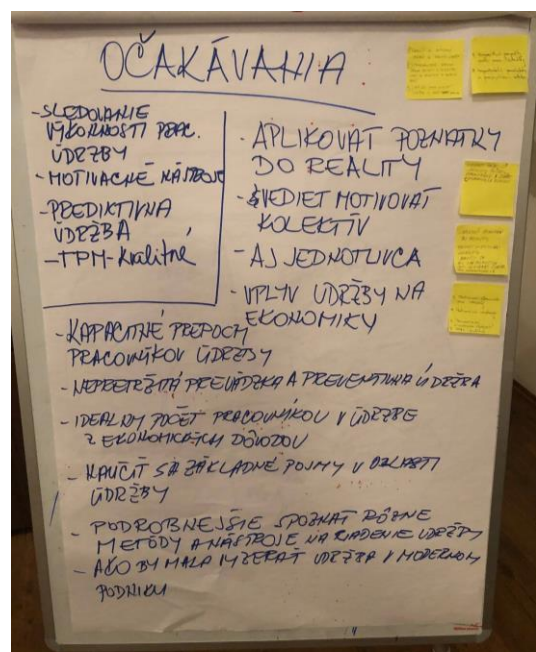 OČAKÁVANIA
-SLEDOVANIE
VÝKONNOSTI PRAC.
ÚDRŽBY
-MOTIVAČNÉ NÁSTROJE
-PREDIKTÍVNA
ÚDRŽBA
-TPM-kvalitné
-APLIKOVAŤ POZNATKY
DO REALITY
-VEDIEŤ MOTIVOVAŤ
KOLEKTÍV
-AJ JEDNOTLIVCA
-VPLYV ÚDRŽBY NA
EKONOMIKY
-KAPACITNÉ PREPOČTY
PRACOVNÍKOV ÚDRŽBY
-NEPRETRŽITÁ PREVÁDZKA A PREVENTÍVNA ÚDRŽBA
-IDEÁLNY POČET PRACOVNÍKOV V ÚDRŽBE
Z EKONOMICKÝCH DÔVODOV
-NAUČIŤ SA ZÁKLADNÉ POJMY V OBLASTI
ÚDRŽBY
-PODROBNEJŠIE SPOZNAŤ RÔZNE
METÓDY A NÁSTROJE NA RIADENIE ÚDRŽBY
-AKO BY MALA VYZERAŤ ÚDRŽBA V MODERNOM
PODNIKU